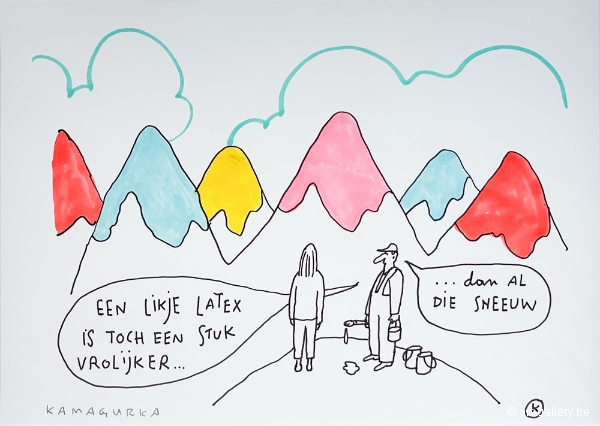 EEN LIKJE LATEX
IS TOCH EEN STUK
VROLIJKER...
...dan AL
DIE SNEEUW
KAMAGURKA
K